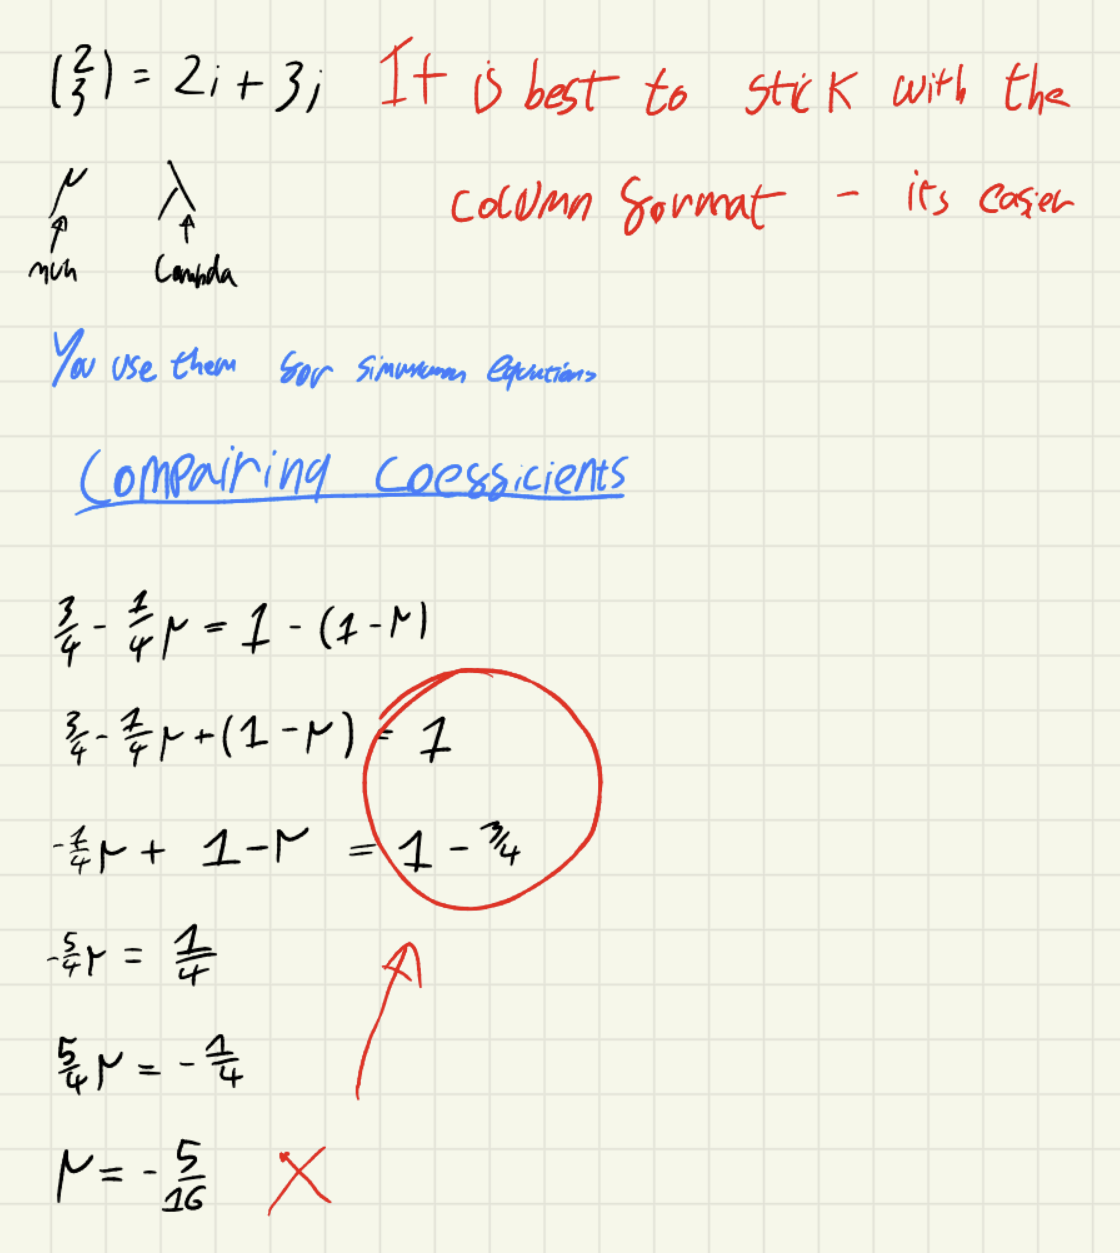 (2/3) = 2i + 3j It is best to stick with the
column format - its easier
μ λ
muh Lambda
You use them for equations
Compairing Coefficients
3/4 - 1/4 μ = 1 - (1 - μ)
3/4 - 1/4 μ + (1 - μ) = 1
-1/4 μ + 1 - μ = 1 - 3/4
-5/4 μ = 1/4
5/4 μ = - 1/4
μ = - 5/16